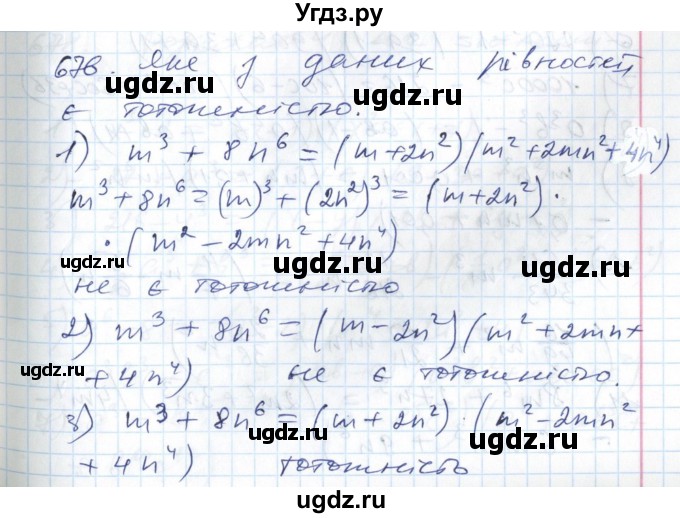 Угдз.ру
676 Яке з даних рівностей
є тотожністю.
1) m³ + 8n⁶ = (m+2n²)(m²+2mn²+4n⁴)
m³+8n⁶ = (m)³+(2n²)³ = (m+2n²)·
·(m²-2mn²+4n⁴)
не є тотожністю
2) m³ + 8n⁶ = (m-2n²)(m²+2mn+
+4n⁴) не є тотожністю.
3) m³ + 8n⁶ = (m+2n²)·(m²-2mn²
+4n⁴) тотожність
ugdz.ru
ugdz.ru
ugdz.ru
ugdz.ru
ugdz.ru
ugdz.ru
ugdz.ru
ugdz.ru
ugdz.ru
ugdz.ru
ugdz.ru